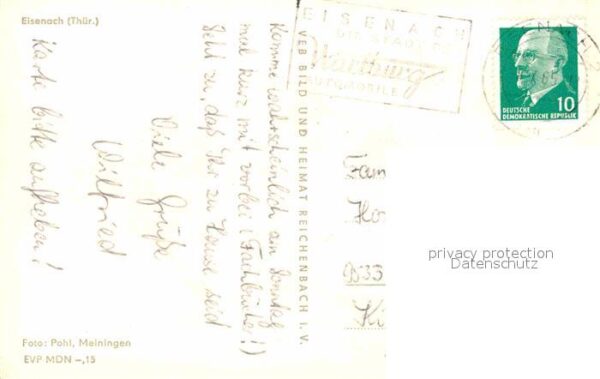 Eisenach (Thür.)
EISENACH
DIE STADT DER
Wartburg
AUTOMOBILE
DEUTSCHE
DEMOKRATISCHE REPUBLIK
10
VEB BILD UND HEIMAT REICHENBACH I. V.
Komme wahrscheinlich am Sonntag
mal kurz mit vorbei (Fachbücher!)
Seht zu, daß Ihr zu Hause seid
Viele Grüße
Wilfried
Karte bitte aufheben!
Fam
Ha
D33
Ki
privacy protection
Datenschutz
Foto: Pohl, Meiningen
EVP MDN -,15